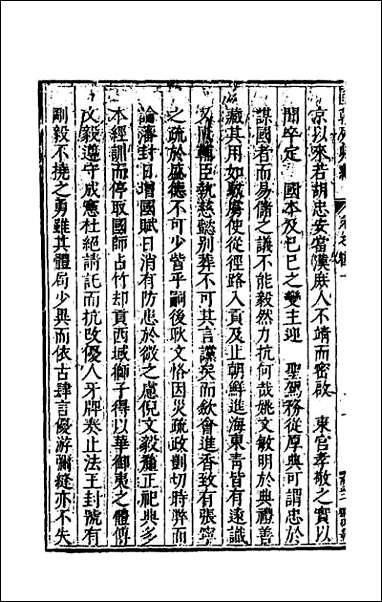 京以來若胡忠安當漢庶人不靖而密啟　東宮孝敬之實以
間卒定　國本及已巳之變主迎　聖駕務從厚典可謂忠於
謀國者而易儲之議不能毅然力抗何哉姚文敏明於典禮善
藏其用如敕虜使從徑路入貢及止朝鮮進海東青皆有遠識
又風輔臣執慈懿別葬不可其言讜矣而歛會進香致有張寧
之疏於盛德不可少訾乎嗣後耿文恪因災疏政剴切時弊而
論藩封日增國賦日消有防患於微之慮倪文毅釐正祀典多
本經訓而停取國師占竹却貢西域獅子得以華御夷之體傅
文毅遵守成憲杜絕請託而抗改優人牙牌奏止法王封號有
剛毅不撓之勇雖其體局少異而依古肆言優游彌縫亦不失